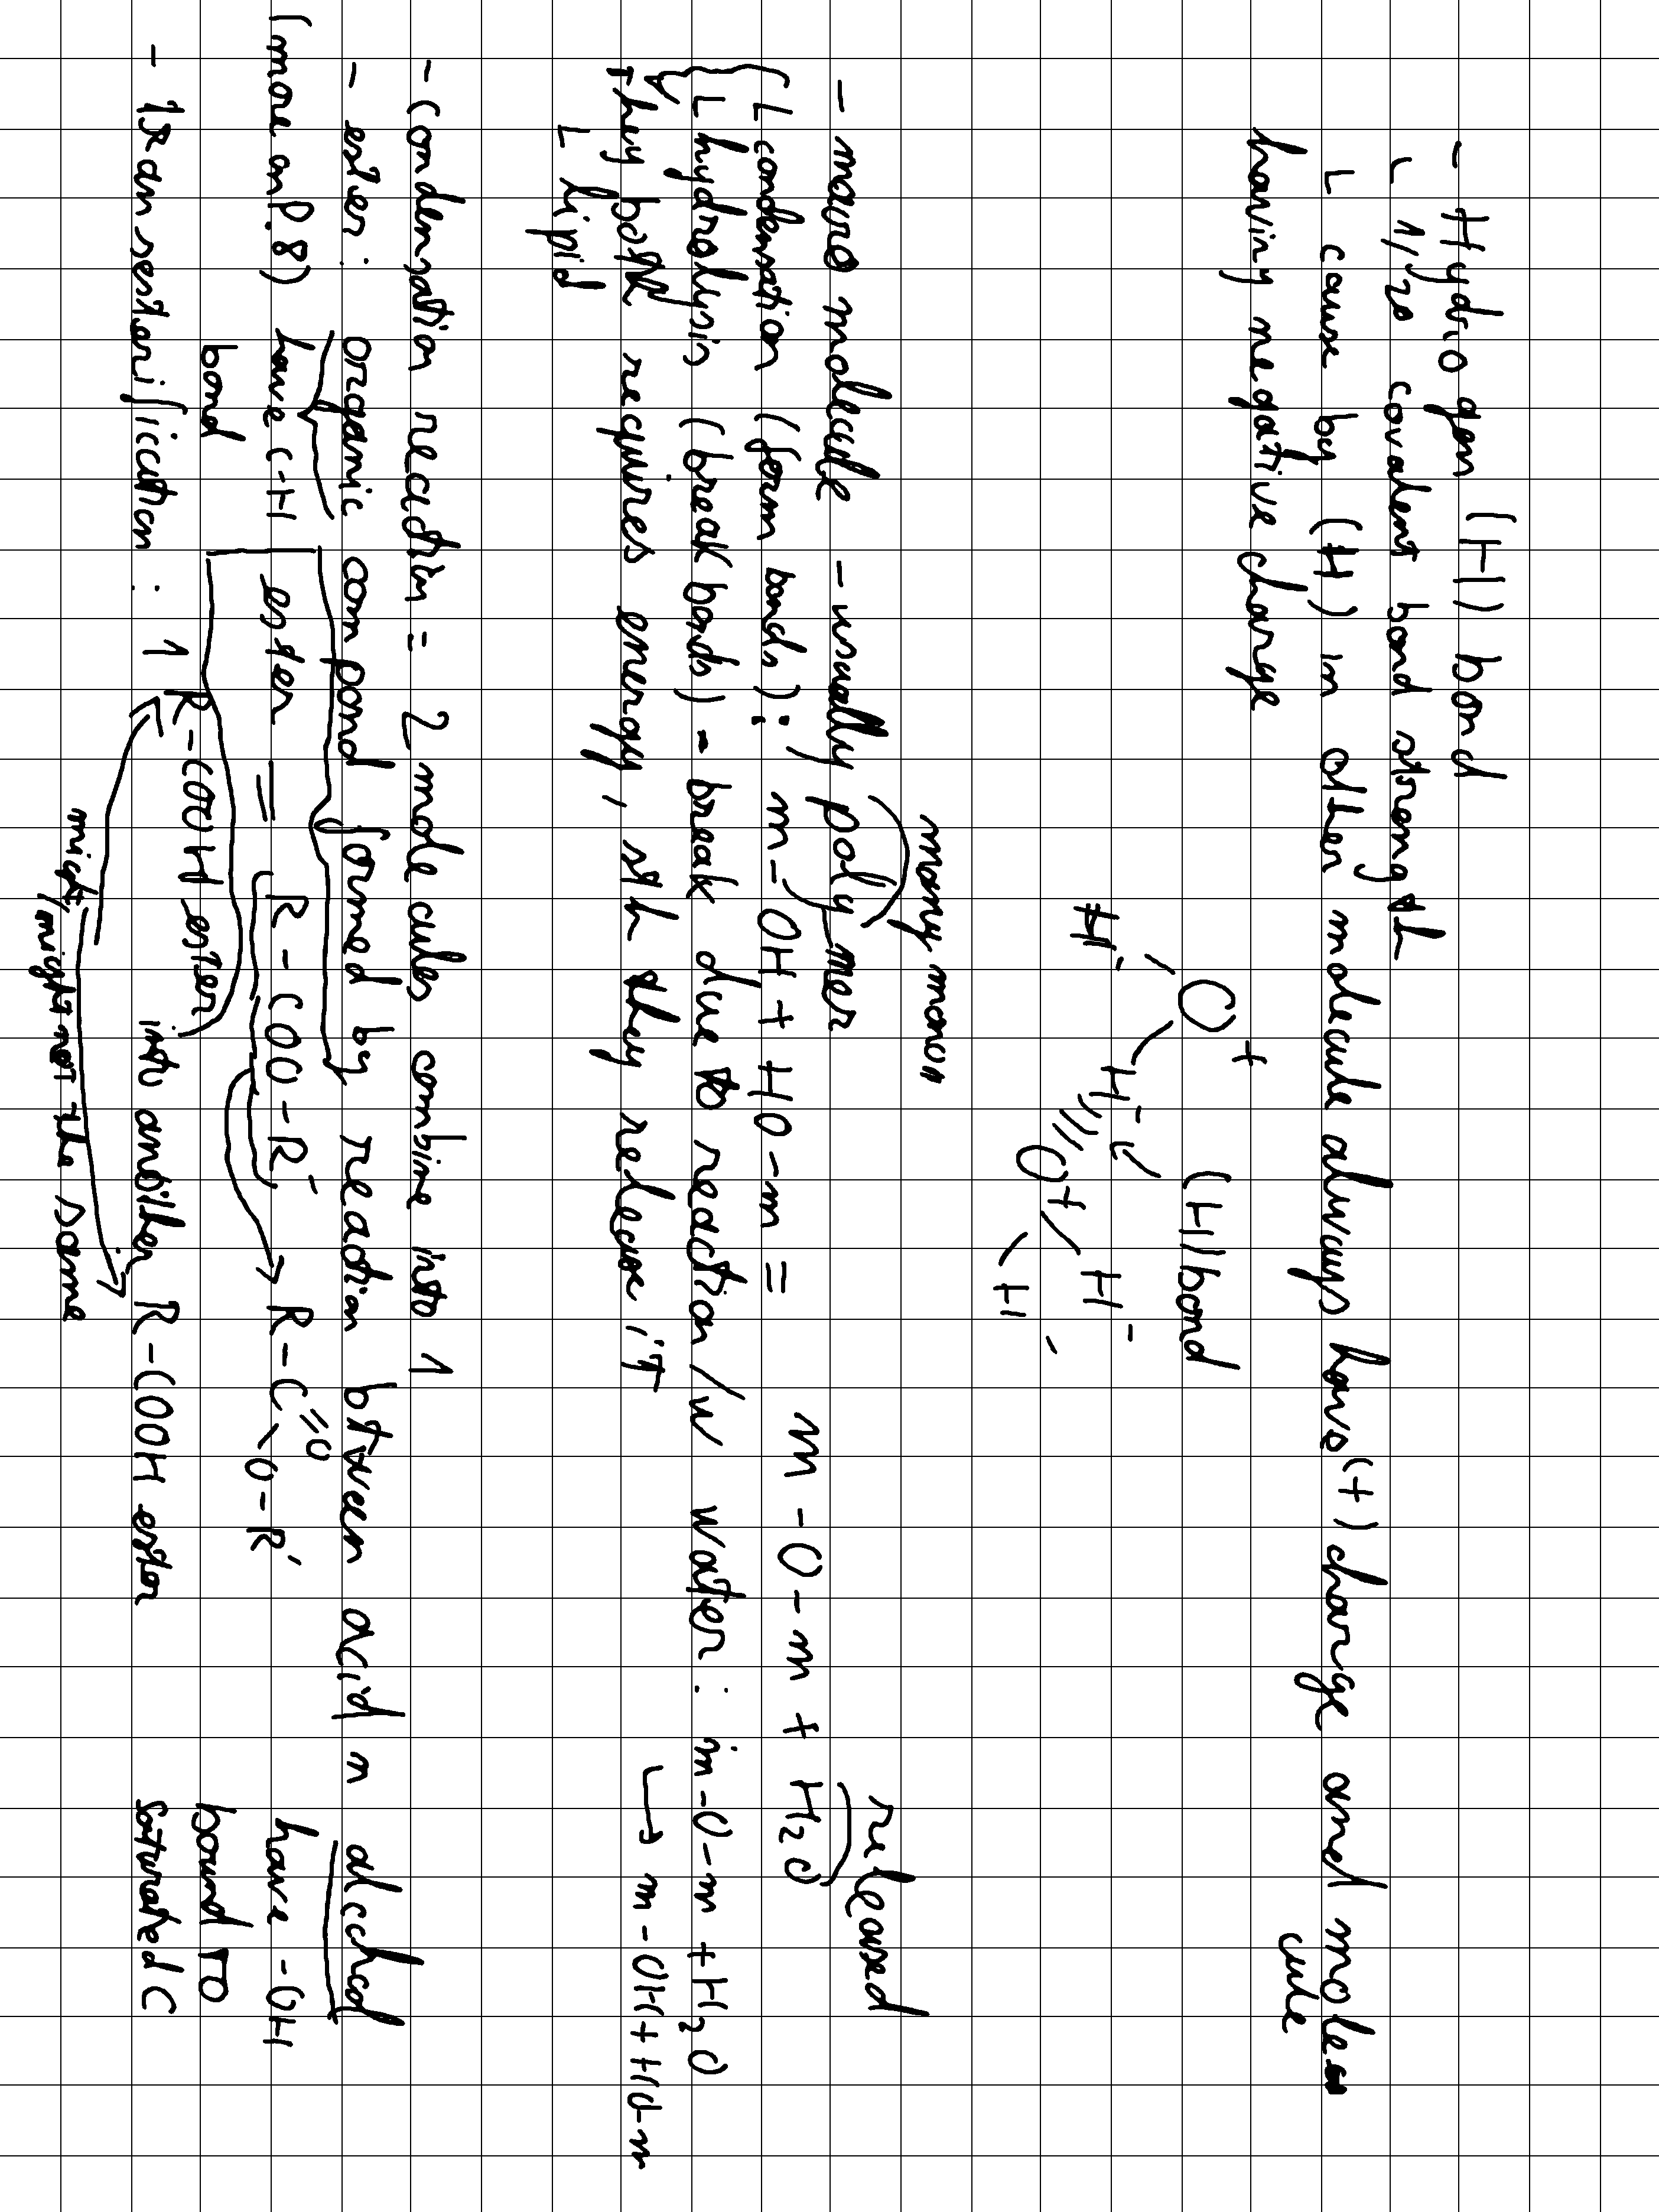 - Hydrogen (H) bond
L 1/20 covalent bond strength
L cause by (H) in other molecule always have (+) charge and molecule
having negative charge
O +
H -
H -
(H) bond
O +
H -
H -
many mono
released
- macro molecule - usually polymer
L condensation (form bonds): m-OH + HO-m = m-O-m + H2O
L hydrolysis (break bonds) - break due to reaction /w water: m-O-m + H2O
→ m-OH + HO-m
They both requires energy, sth they release it
L lipid
- condensation reaction = 2 molecules combine into 1
- ester: organic compond formed by reaction btween acid n alcohol
(more on P.8) have C-H bond
ester = R-COO-R' → R-C=O-O-R'
have -OH bound to saturated C
- transesterification: 1 R-COOH ester into another R-COOH ester
might/might not the same